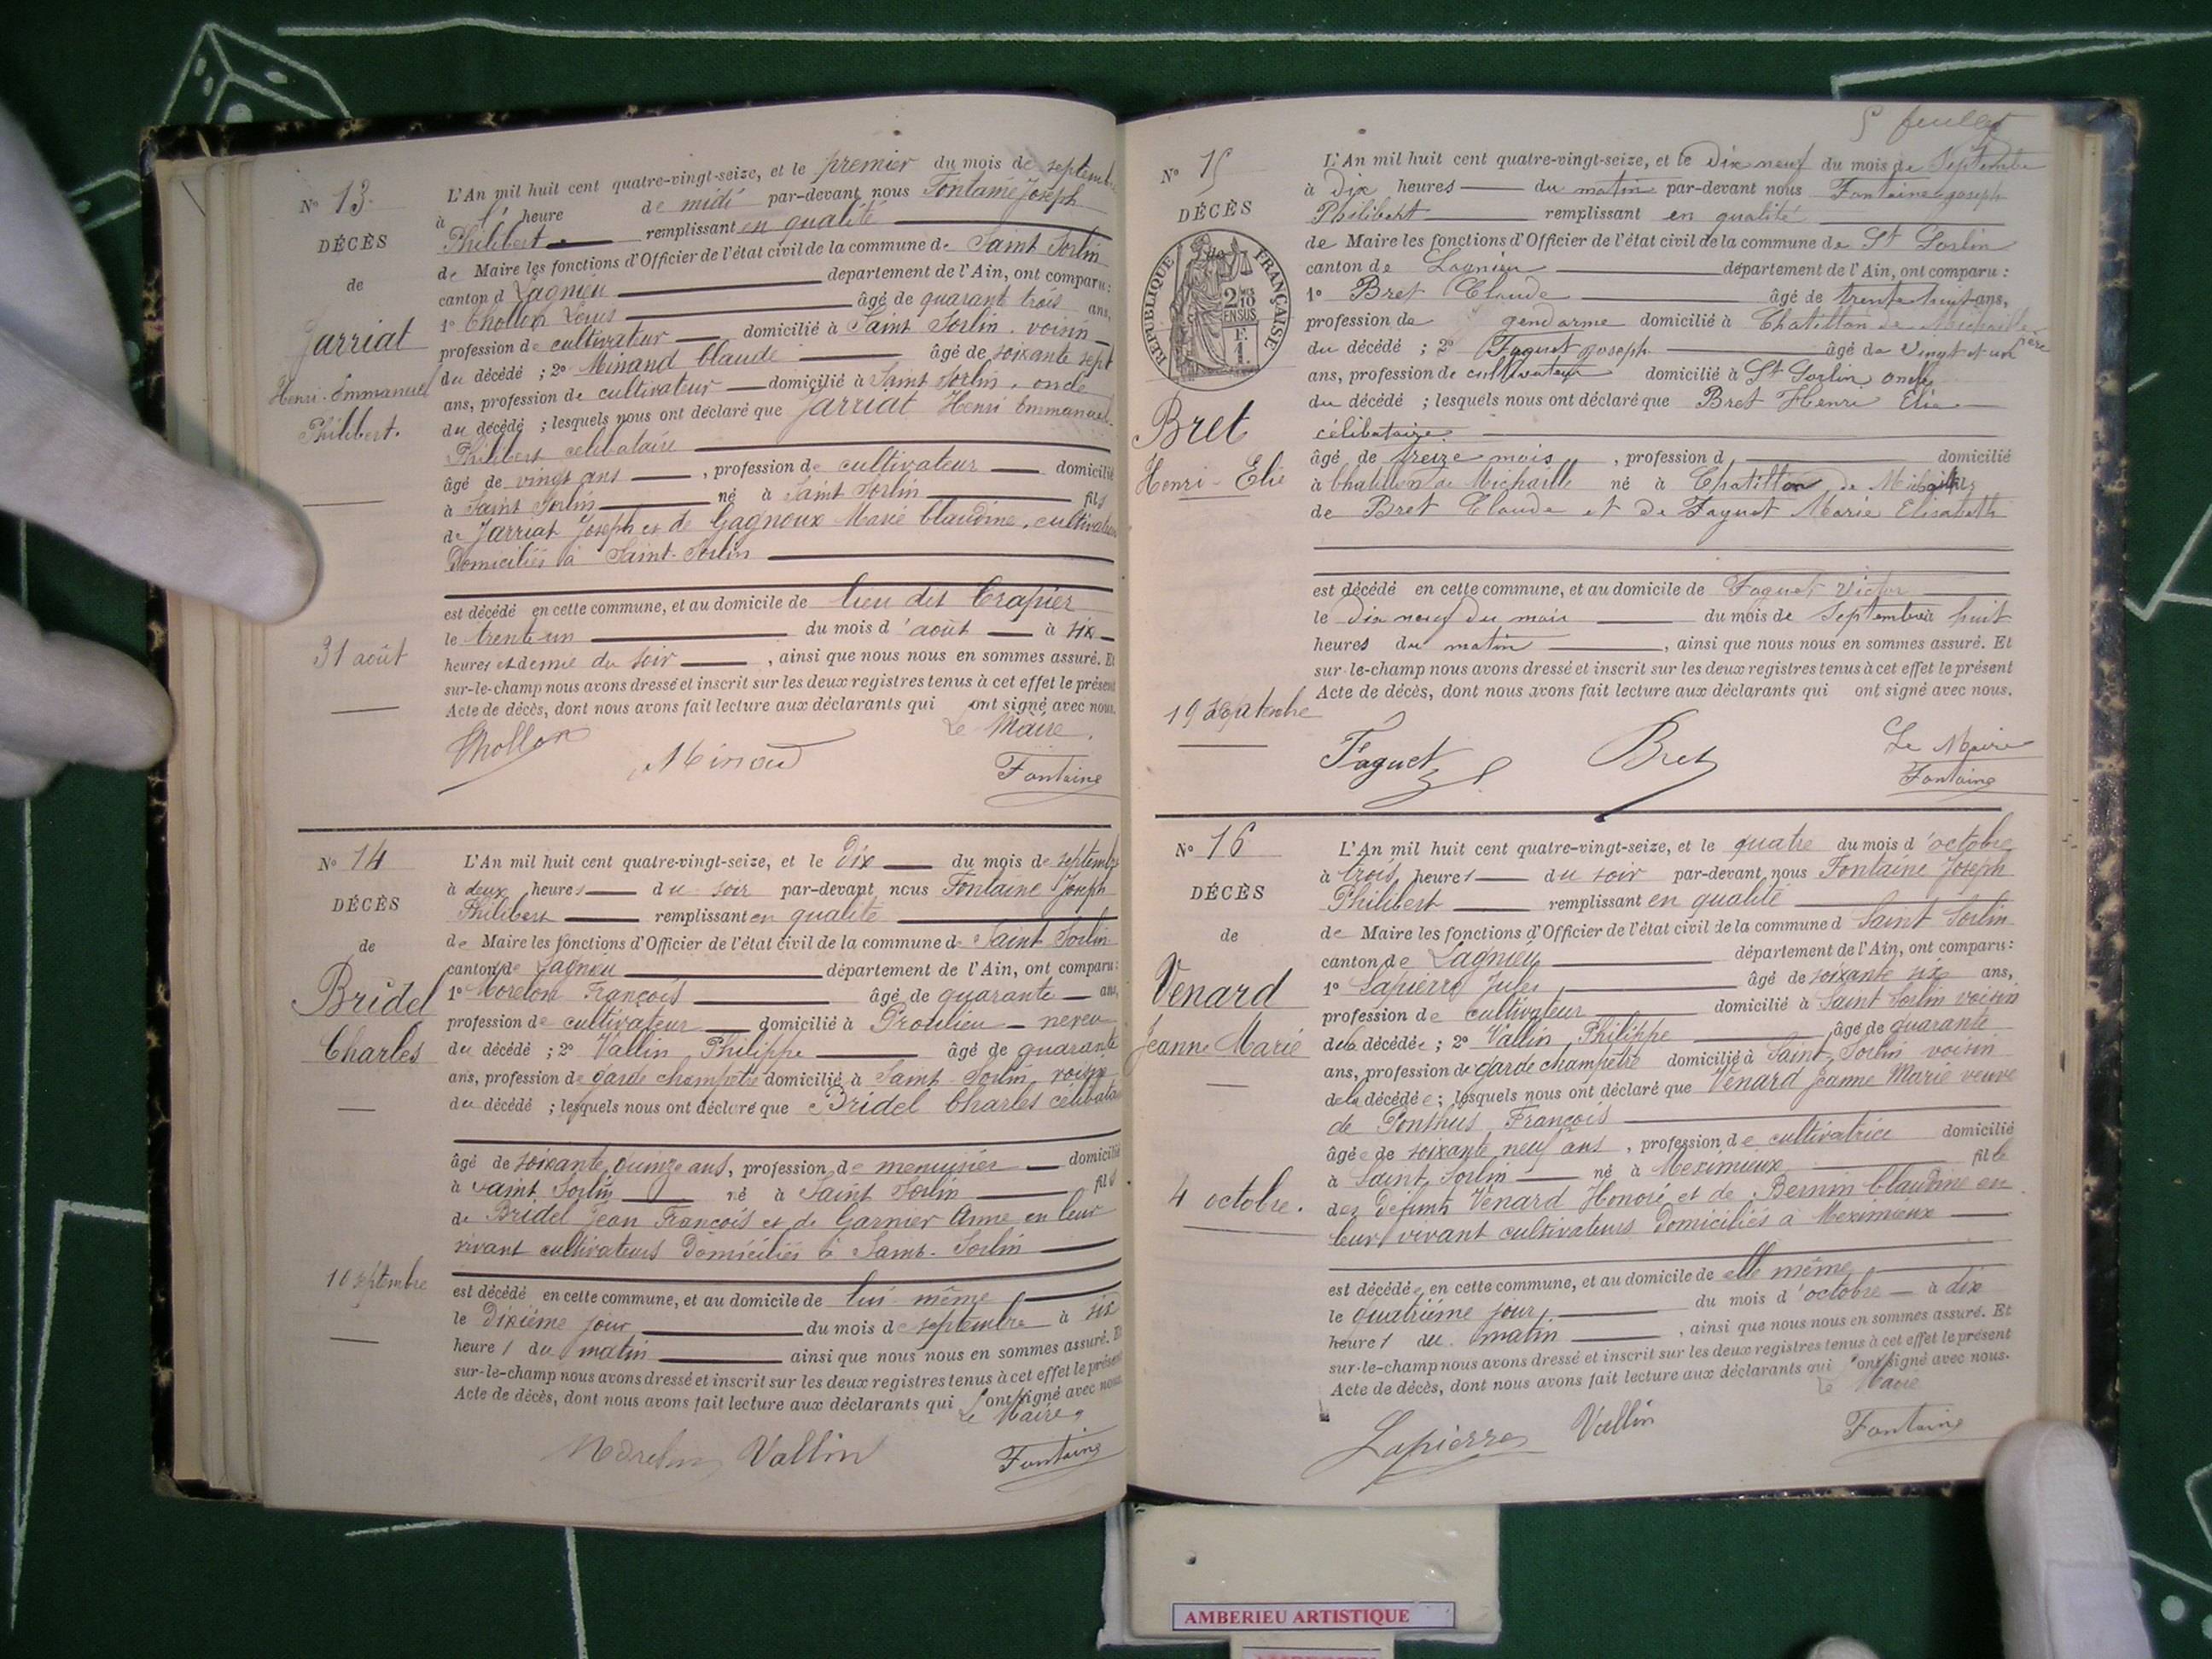 N° 13.
DÉCÈS
de
Jarriat
Henri-Emmanuel
Philibert.
31 août
L'An mil huit cent quatre-vingt-seize, et le premier du mois de septembre
à heure de midi par-devant nous Fontaine Joseph
Philibert remplissant en qualité
de Maire les fonctions d'Officier de l'état civil de la commune de Saint Sorlin
canton d Lagnieu département de l'Ain, ont comparu :
1° Chollon Louis âgé de quarant trois ans,
profession de cultivateur domicilié à Saint Sorlin. voisin
du décédé ; 2° Minand Claude âgé de soixante sept
ans, profession de cultivateur domicilié à Saint Sorlin. oncle
du décédé ; lesquels nous ont déclaré que Jarriat Henri Emmanuel
Philibert célibataire
âgé de vingt ans, profession de cultivateur domicilié
à Saint Sorlin né à Saint Sorlin fils
de Jarriat Joseph et de Gagnoux Marie Claudine, cultivateurs
Domiciliés à Saint-Sorlin
est décédé en cette commune, et au domicile de lieu dit Crapier
le trente-un du mois d'août à six
heures et demie du soir, ainsi que nous nous en sommes assuré. Et
sur-le-champ nous avons dressé et inscrit sur les deux registres tenus à cet effet le présent
Acte de décès, dont nous avons fait lecture aux déclarants qui ont signé avec nous.
Le Maire.
Chollon Minand Fontaine
N° 14
DÉCÈS
de
Bridel
Charles
10 septembre
L'An mil huit cent quatre-vingt-seize, et le Dix du mois de septembre
à deux heures du soir par-devant nous Fontaine Joseph
Philibert remplissant en qualité
de Maire les fonctions d'Officier de l'état civil de la commune d Saint Sorlin
canton de Lagnieu département de l'Ain, ont comparu :
1° Morelon François âgé de quarante ans,
profession de cultivateur domicilié à Proulieu neveu
du décédé ; 2° Vallin Philippe âgé de quarante
ans, profession de garde champêtre domicilié à Saint-Sorlin voisin
du décédé ; lesquels nous ont déclaré que Bridel Charles célibataire
âgé de soixante quinze ans, profession de menuisier domicilié
à Saint Sorlin né à Saint Sorlin fils
de Bridel Jean François et de Garnier Anne en leur
vivant cultivateurs Domiciliés à Saint-Sorlin
est décédé en cette commune, et au domicile de lui-même
le Dixième jour du mois de septembre à six
heures du matin ainsi que nous nous en sommes assuré. Et
sur-le-champ nous avons dressé et inscrit sur les deux registres tenus à cet effet le présent
Acte de décès, dont nous avons fait lecture aux déclarants qui ont signé avec nous.
Le Maire
Morelon Vallin Fontaine
5 feuillet
N° 15
DÉCÈS
RÉPUBLIQUE FRANÇAISE
2/10 EN SUS
Bret
Henri-Elie
19 septembre
L'An mil huit cent quatre-vingt-seize, et le Dix neuf du mois de Septembre
à Dix heures du matin par-devant nous Fontaine Joseph
Philibert remplissant en qualité
de Maire les fonctions d'Officier de l'état civil de la commune de St Sorlin
canton de Lagnieu département de l'Ain, ont comparu :
1° Bret Claude âgé de trente huit ans,
profession de gendarme domicilié à Chatillon de Michaille père
du décédé ; 2° Faguet Joseph âgé de vingt et un
ans, profession de cultivateur domicilié à St Sorlin oncle
du décédé ; lesquels nous ont déclaré que Bret Henri Elie
célibataire.
âgé de treize mois, profession d domicilié
à Chatillon de Michaille né à Chatillon de Michaille
de Bret Claude et de Faguet Marie Elisabeth
est décédé en cette commune, et au domicile de Faguet Victor
le dix neuf du mois du mois de Septembre à huit
heures du matin, ainsi que nous nous en sommes assuré. Et
sur-le-champ nous avons dressé et inscrit sur les deux registres tenus à cet effet le présent
Acte de décès, dont nous avons fait lecture aux déclarants qui ont signé avec nous.
Faguet Bret Le Maire
Fontaine
N° 16
DÉCÈS
de
Venard
Jeanne Marie
4 octobre.
L'An mil huit cent quatre-vingt-seize, et le quatre du mois d'octobre
à trois heures du soir par-devant nous Fontaine Joseph
Philibert remplissant en qualité
de Maire les fonctions d'Officier de l'état civil de la commune d Saint Sorlin
canton de Lagnieu département de l'Ain, ont comparu :
1° Lapierre Jules âgé de soixante six ans,
profession de cultivateur domicilié à Saint Sorlin voisin
de la décédée ; 2° Vallin Philippe âgé de quarante
ans, profession de garde champêtre domicilié à Saint-Sorlin voisin
de la décédée ; lesquels nous ont déclaré que Venard Jeanne Marie veuve
de Ponthus François
âgée de soixante neuf ans, profession de cultivatrice domicilié
à Saint Sorlin né à Meximieux fille
des Défunts Venard Honoré et de Bernin Claudine en
leur vivant cultivateurs Domiciliés à Meximieux
est décédée en cette commune, et au domicile de elle même
le quatrième jour du mois d'octobre à dix
heures du matin, ainsi que nous nous en sommes assuré. Et
sur-le-champ nous avons dressé et inscrit sur les deux registres tenus à cet effet le présent
Acte de décès, dont nous avons fait lecture aux déclarants qui ont signé avec nous.
Le Maire
Lapierre Vallin Fontaine
AMBERIEU ARTISTIQUE